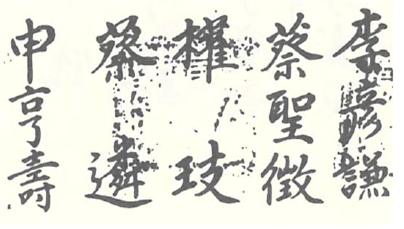 李彦謙
蔡聖徵
權玟
蔡遴
申亨壽